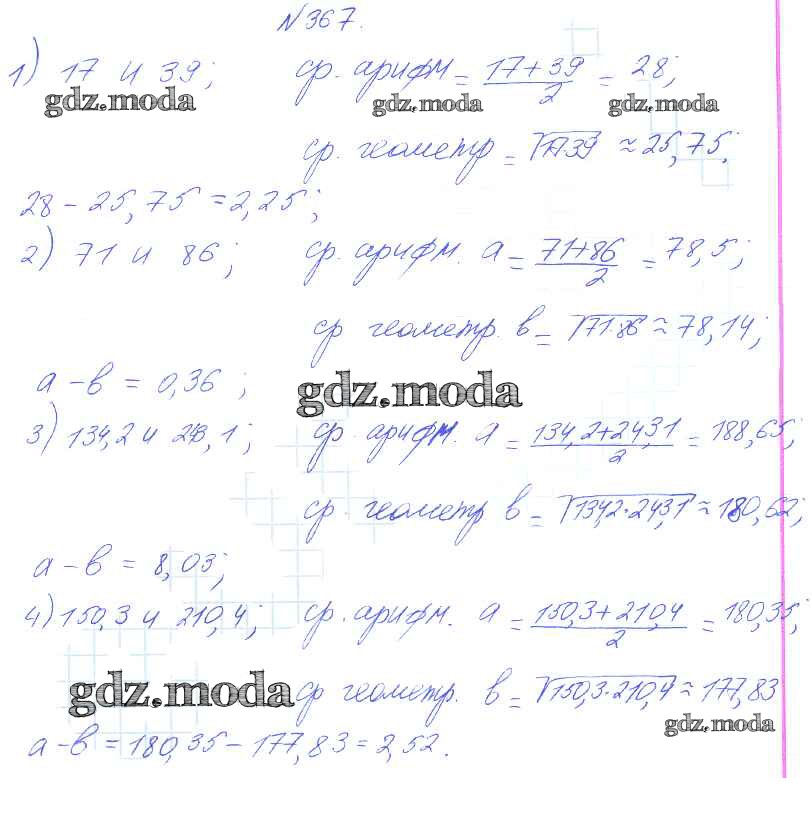 №367.
1) 17 и 39; ср. арифм = (17+39)/2 = 28;
gdz.moda gdz.moda gdz.moda
ср. геометр = √17·39 ≈ 25,75.
28 - 25,75 = 2,25;
2) 71 и 86; ср. арифм. a = (71+86)/2 = 78,5;
ср геометр. b = √71·86 ≈ 78,14;
a - b = 0,36;
gdz.moda
3) 134,2 и 243,1; ср. арифм. a = (134,2+243,1)/2 = 188,65;
ср геометр b = √134,2·243,1 ≈ 180,62;
a - b = 8,03;
4) 150,3 и 210,4; ср. арифм. a = (150,3+210,4)/2 = 180,35;
gdz.moda
ср геометр. b = √150,3·210,4 ≈ 177,83
gdz.moda
a - b = 180,35 - 177,83 = 2,52.